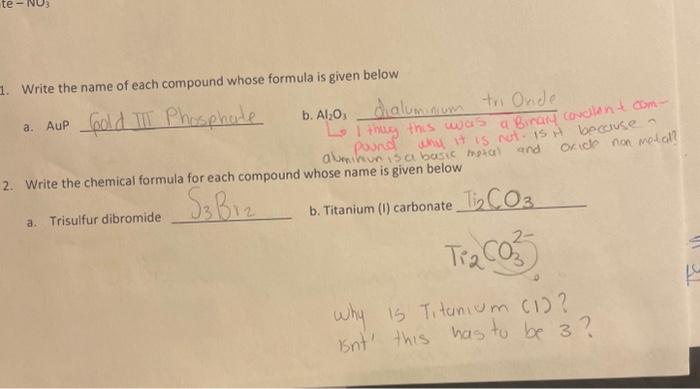 te – NO3
1. Write the name of each compound whose formula is given below
a. AuP Gold III Phosphate
b. Al2O3 dialuminum tri Oxide
I thug this was a Binary covelent com-
pound why it is not. is it because
aluminun is a basic metal and oxide non metal?
2. Write the chemical formula for each compound whose name is given below
a. Trisulfur dibromide S3Br2
b. Titanium (I) carbonate Ti2CO3
Ti2CO3 2-
Why is Titanium (1)?
isnt' this has to be 3?